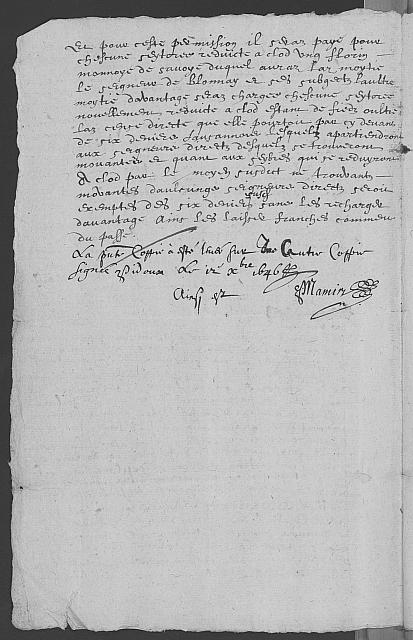 Et pour ceste permission il sera payé pour
chescune seytorée reduicte a clod ung florin
monnoye de savoye duquel aura la moytié
le seigneur de Blonnay et ses subgects l'aultre
moytié davantage sera chargée chescune seytorée
nouvellement reduicte a clod estant de fied oultre
la cense directe que elle pourtoit par cy devant
de six deniers lausannois lesquelz apartiendront
aux seigneurs directz desquelz se trouveront
mouvantes et quant aux seytorées qui se reduyront
A clod par le moyen susdict ne trouvants
mouvantes daulcunge seigneurie directz seront
exemptes des six deniers sans les recharger
davantage Ains les laisser franches comment
du passé
La pnte Coppie a esté levee sur une Autre Coppie
signée Le 12 Xbre 1646
Ainsi est Mamin